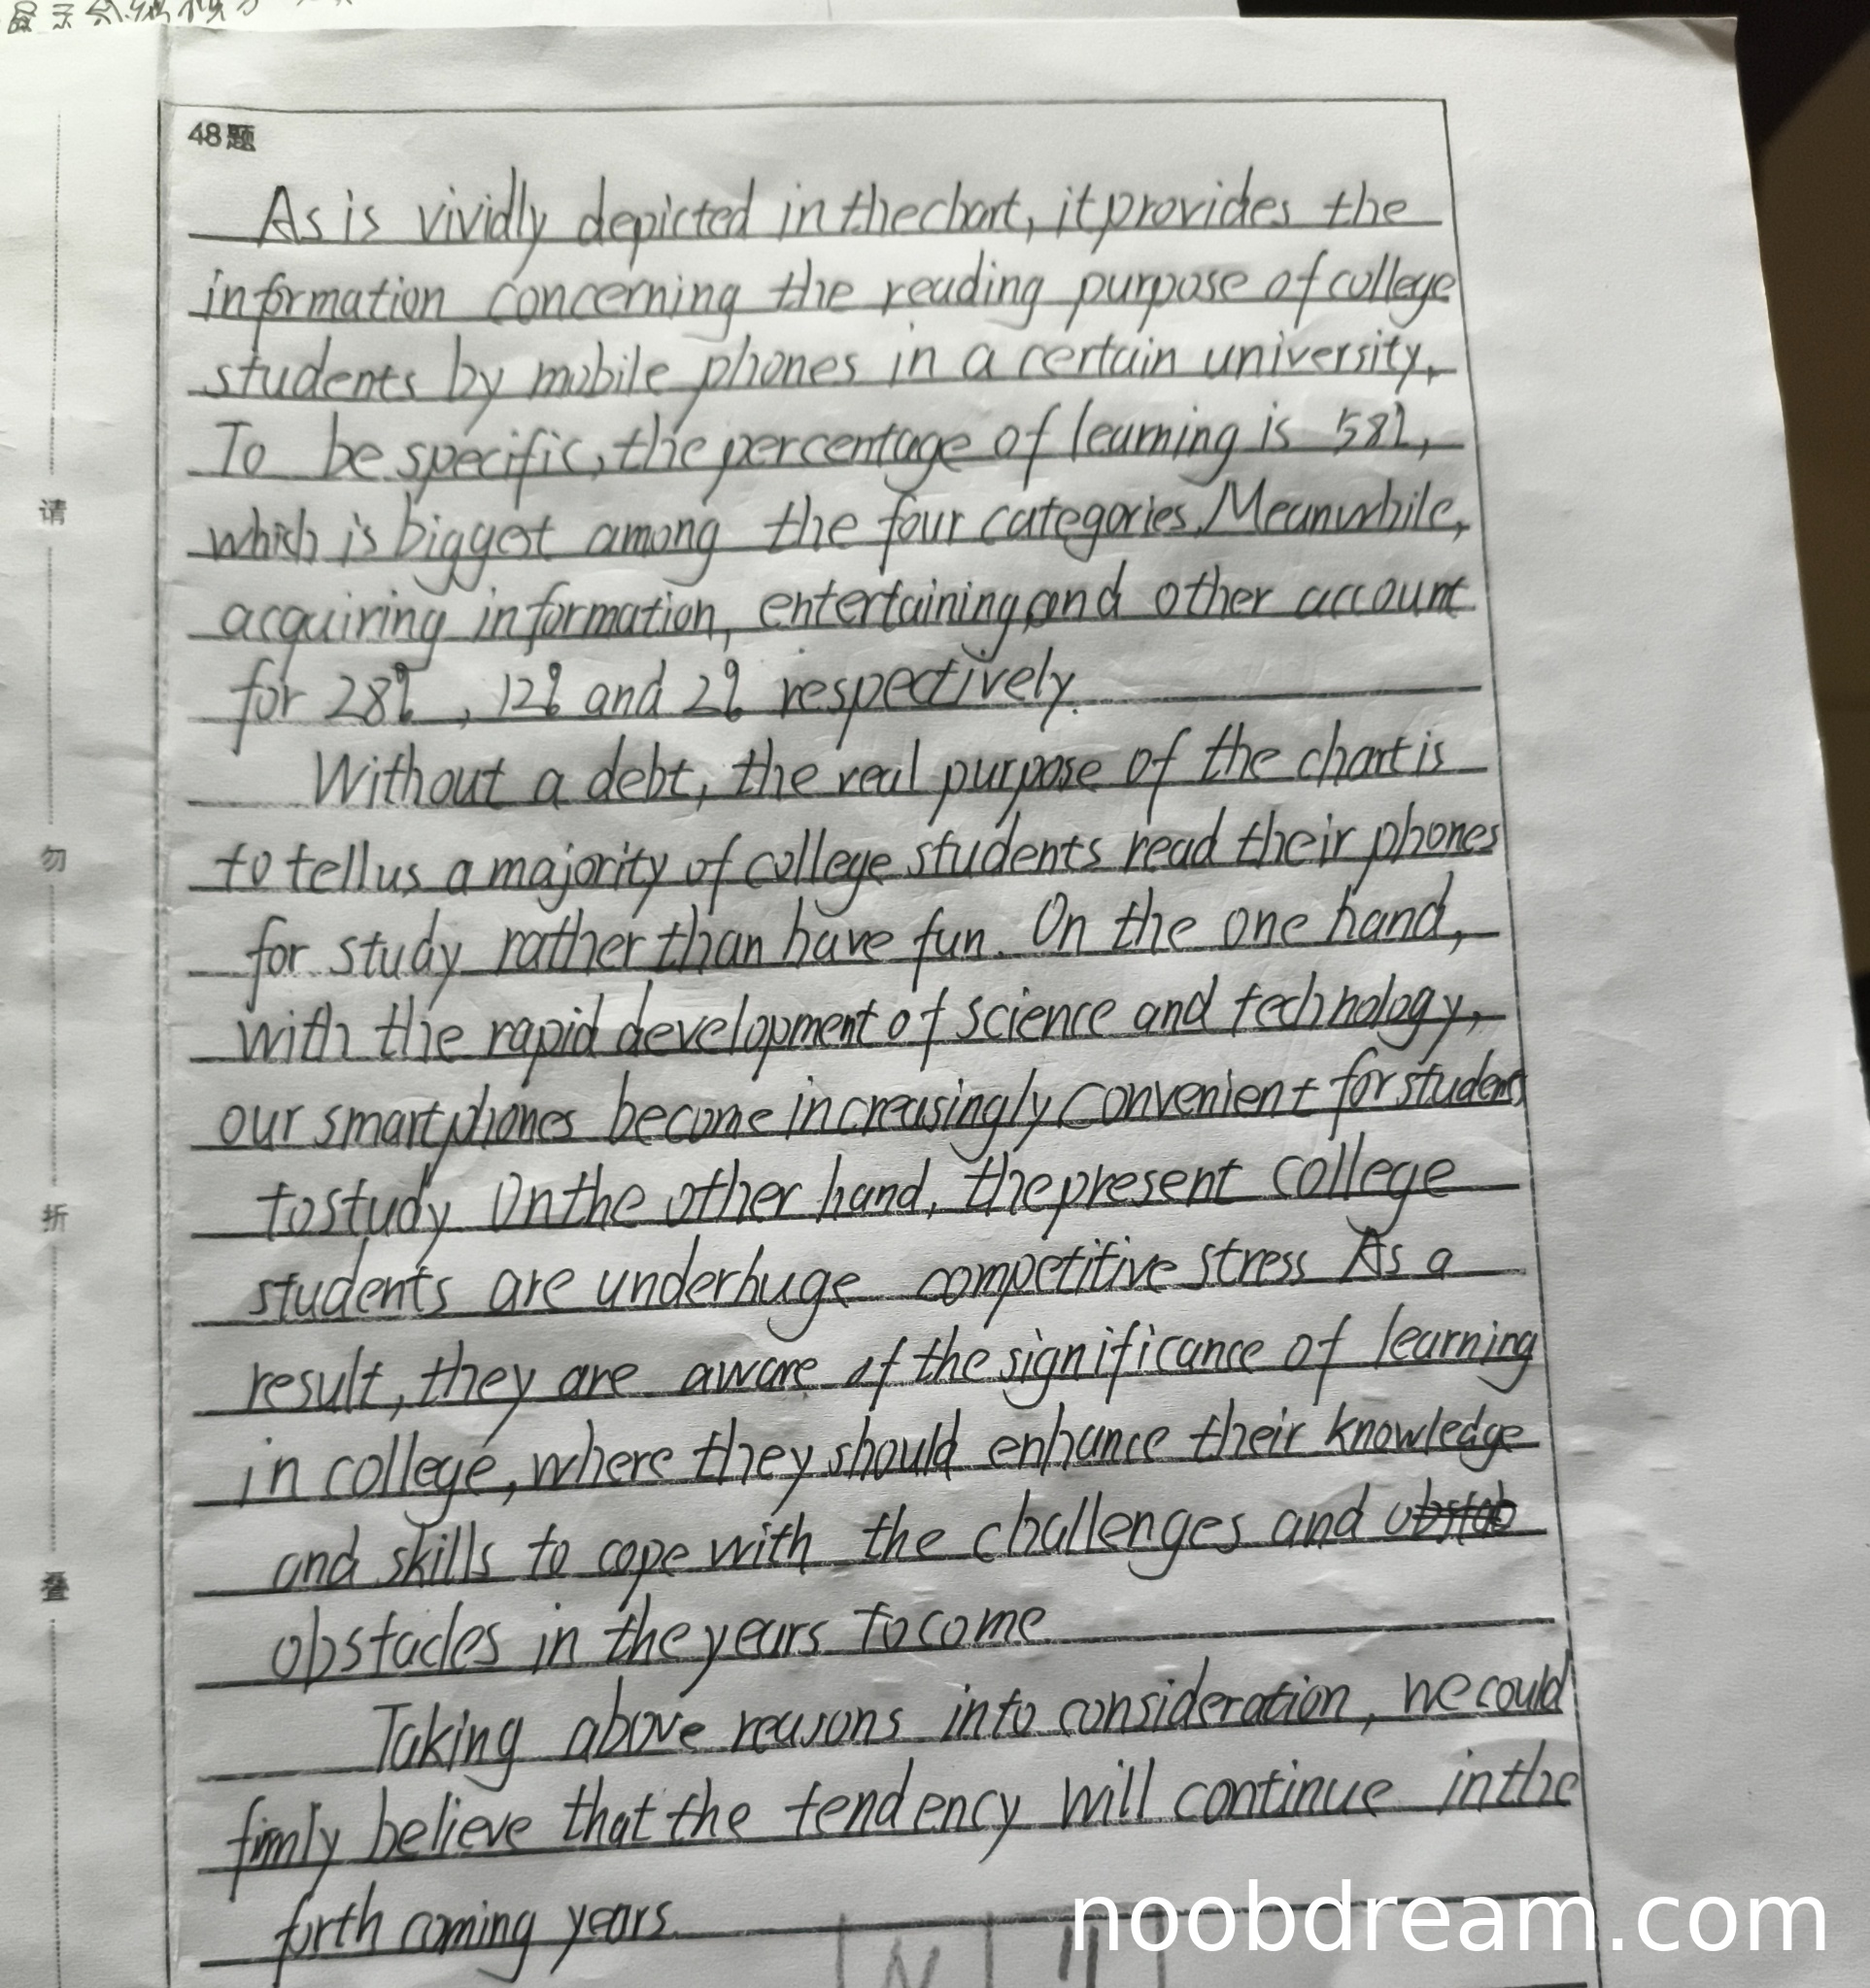 48题
As is vividly depicted in the chart, it provides the
information concerning the reading purpose of college
students by mobile phones in a certain university.
To be specific, the percentage of learning is 58%,
which is biggest among the four categories. Meanwhile,
acquiring information, entertaining and other account
for 28%, 12% and 2% respectively.
Without a debt, the real purpose of the chart is
to tell us a majority of college students read their phones
for study rather than have fun. On the one hand,
with the rapid development of science and technology,
our smartphones become increasingly convenient for students
to study. On the other hand, the present college
students are under huge competitive stress As a
result, they are aware of the significance of learning
in college, where they should enhance their knowledge
and skills to cope with the challenges and
obstacles in the years to come
Taking above reasons into consideration, we could
firmly believe that the tendency will continue in the
forth coming years.
请
勿
折
叠
noobdream.com